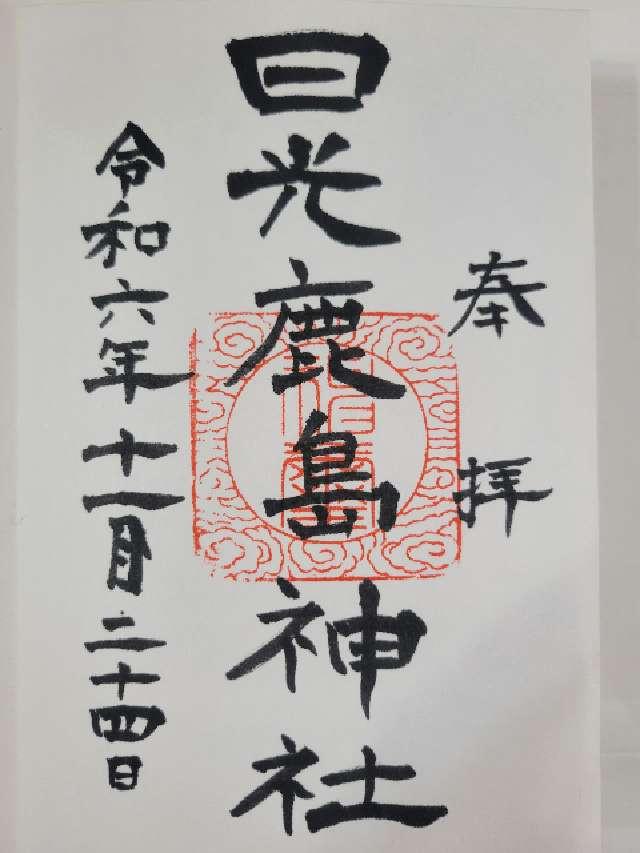 奉拝
日光鹿島神社
令和六年十一月二十四日